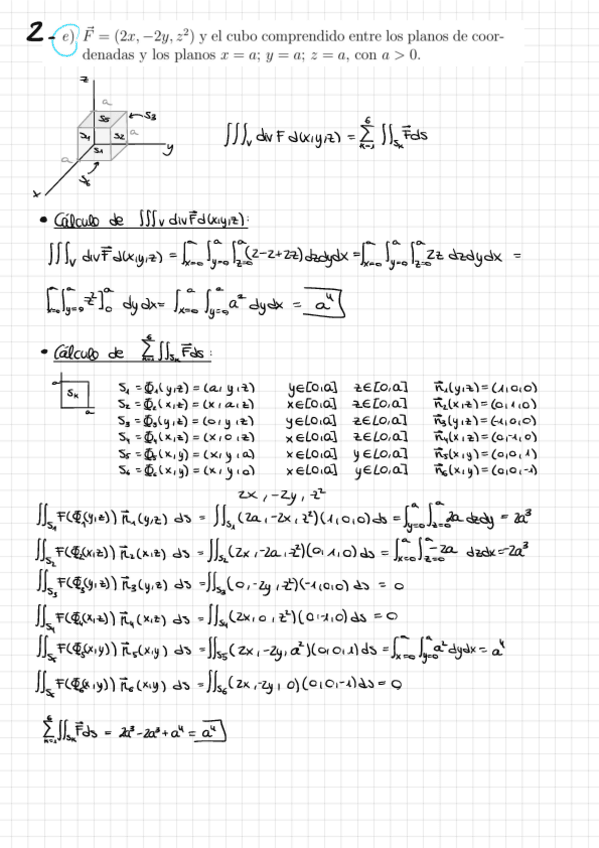 2- e) F⃗ = (2x, −2y, z²) y el cubo comprendido entre los planos de coor-
denadas y los planos x = a; y = a; z = a, con a > 0.
z
a
S5
←S3
S4
S2
a
S1
a
y
S6
x
∭_V div F d(x,y,z) = Σ_{k=1}^{6} ∬_{S_k} F⃗ ds
• Cálculo de ∭_V div F⃗ d(x,y,z):
∭_V div F⃗ d(x,y,z) = ∫_{x=0}^{a} ∫_{y=0}^{a} ∫_{z=0}^{a} (2−2+2z) dzdydx = ∫_{x=0}^{a} ∫_{y=0}^{a} ∫_{z=0}^{a} 2z dzdydx =
∫_{x=0}^{a} ∫_{y=0}^{a} z²]_0^a dydx = ∫_{x=0}^{a} ∫_{y=0}^{a} a² dydx = a⁴
• Cálculo de Σ_{k=1}^{6} ∬_{S_k} F⃗ ds:
a
S_k
a
S1 = Φ1(y,z) = (a,y,z) y∈[0,a] z∈[0,a] n⃗1(y,z) = (1,0,0)
S2 = Φ2(x,z) = (x,a,z) x∈[0,a] z∈[0,a] n⃗2(x,z) = (0,1,0)
S3 = Φ3(y,z) = (0,y,z) y∈[0,a] z∈[0,a] n⃗3(y,z) = (-1,0,0)
S4 = Φ4(x,z) = (x,0,z) x∈[0,a] z∈[0,a] n⃗4(x,z) = (0,-1,0)
S5 = Φ5(x,y) = (x,y,a) x∈[0,a] y∈[0,a] n⃗5(x,y) = (0,0,1)
S6 = Φ6(x,y) = (x,y,0) x∈[0,a] y∈[0,a] n⃗6(x,y) = (0,0,-1)
2x, -2y, z²
∬_{S1} F(Φ1(y,z)) n⃗1(y,z) ds = ∬_{S1} (2a,-2x,z²)(1,0,0) ds = ∫_{y=0}^{a} ∫_{z=0}^{a} 2a dzdy = 2a³
∬_{S2} F(Φ2(x,z)) n⃗2(x,z) ds = ∬_{S2} (2x,-2a,z²)(0,1,0) ds = ∫_{x=0}^{a} ∫_{z=0}^{a} -2a dzdx = -2a³
∬_{S3} F(Φ3(y,z)) n⃗3(y,z) ds = ∬_{S3} (0,-2y,z²)(-1,0,0) ds = 0
∬_{S4} F(Φ4(x,z)) n⃗4(x,z) ds = ∬_{S4} (2x,0,z²)(0,-1,0) ds = 0
∬_{S5} F(Φ5(x,y)) n⃗5(x,y) ds = ∬_{S5} (2x,-2y,a²)(0,0,1) ds = ∫_{x=0}^{a} ∫_{y=0}^{a} a² dydx = a⁴
∬_{S6} F(Φ6(x,y)) n⃗6(x,y) ds = ∬_{S6} (2x,-2y,0)(0,0,-1) ds = 0
Σ_{k=1}^{6} ∬_{S_k} F⃗ ds = 2a³ - 2a³ + a⁴ = a⁴